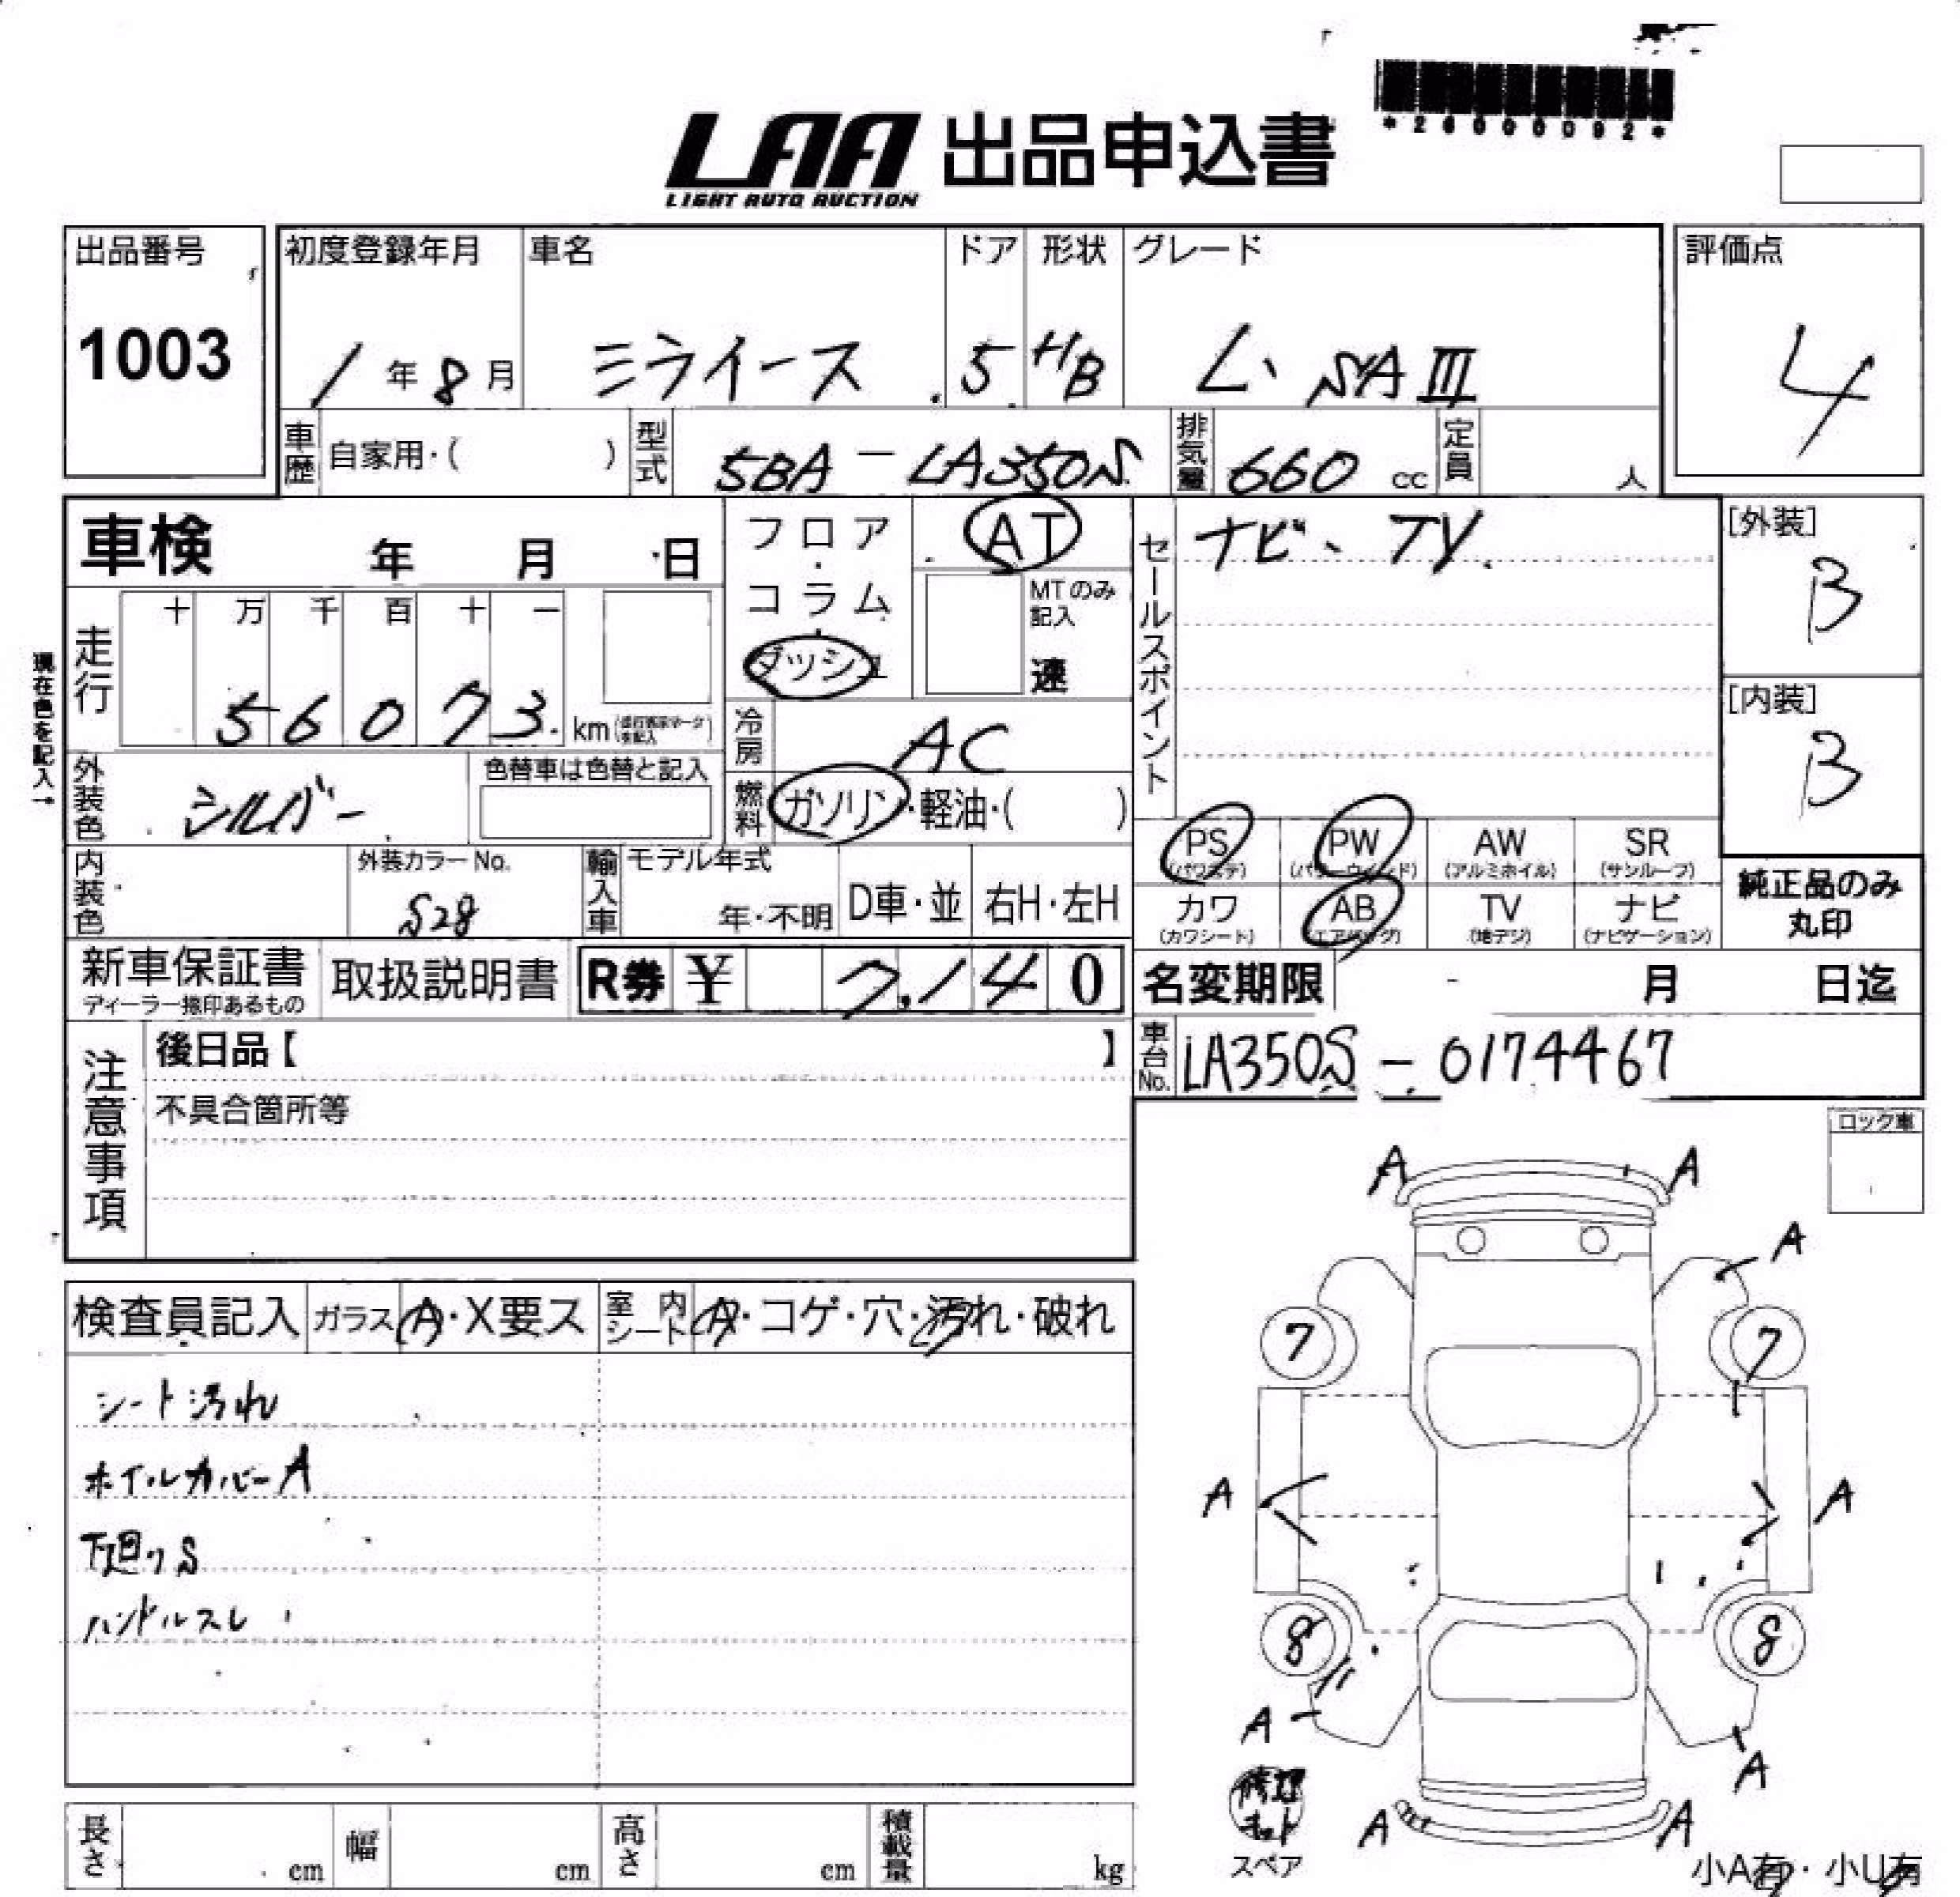 *26000092*
LAA 出品申込書
LIGHT AUTO AUCTION
出品番号
1003
初度登録年月
1年8月
車名
ミライース
ドア
5
形状
HB
グレード
L、SAⅢ
評価点
4
車歴
自家用・( )
型式
5BA-LA350S
排気量
660 cc
定員
人
車検 年 月 日
フロア・コラム・ダッシュ
AT
MTのみ記入
速
セールスポイント
ナビ、TV
[外装]
B
[内装]
B
現在色を記入→
走行
十 万 千 百 十 一
56073 km
冷房
AC
外装色
シルバー
色替車は色替と記入
燃料
ガソリン・軽油・( )
PS
(パワステ)
PW
(パワーウィンド)
AW
(アルミホイル)
SR
(サンルーフ)
カワ
(カワシート)
AB
(エアバッグ)
TV
(地デジ)
ナビ
(ナビゲーション)
純正品のみ
丸印
内装色
外装カラーNo.
S28
輸入車
モデル年式
年・不明
D車・並
右H・左H
新車保証書
ディーラー捺印あるもの
取扱説明書
R券 ¥ 7,140
名変期限 月 日迄
注意事項
後日品【 】
不具合箇所等
車台No.
LA350S-0174467
ロック車
検査員記入
ガラス
A・X要ス
室内シート
A・コゲ・穴・汚れ・破れ
シート汚れ
ホイルカバーA
下廻りS
ハンドルスレ
A A
A
7 7
A A
8 8
A A
修理キット
スペア
A A
小A有・小U有
長さ cm
幅 cm
高さ cm
積載量 kg